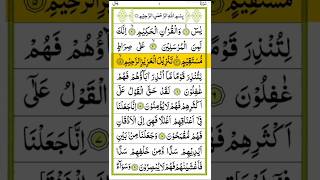 بِسْمِ اللهِ الرَّحْمٰنِ الرَّحِيْمِ
يٰسٓ ۚ وَالْقُرْاٰنِ الْحَكِيْمِ ۙ اِنَّكَ
لَمِنَ الْمُرْسَلِيْنَ ۙ عَلٰى صِرَاطٍ
مُّسْتَقِيْمٍ ؕ تَنْزِيْلَ الْعَزِيْزِ الرَّحِيْمِ ۙ
لِتُنْذِرَ قَوْمًا مَّاۤ اُنْذِرَ اٰبَآؤُهُمْ فَهُمْ
غٰفِلُوْنَ لَقَدْ حَقَّ الْقَوْلُ عَلٰۤى
اَكْثَرِهِمْ فَهُمْ لَا يُؤْمِنُوْنَ اِنَّا جَعَلْنَا
فِيْۤ اَعْنَاقِهِمْ اَغْلٰلًا فَهِيَ اِلَى الْاَذْقَانِ
فَهُمْ مُّقْمَحُوْنَ وَجَعَلْنَا مِنْۢ بَيْنِ
اَيْدِيْهِمْ سَدًّا وَّمِنْ خَلْفِهِمْ سَدًّا
فَاَغْشَيْنٰهُمْ فَهُمْ لَا يُبْصِرُوْنَ وَسَوَآءٌ